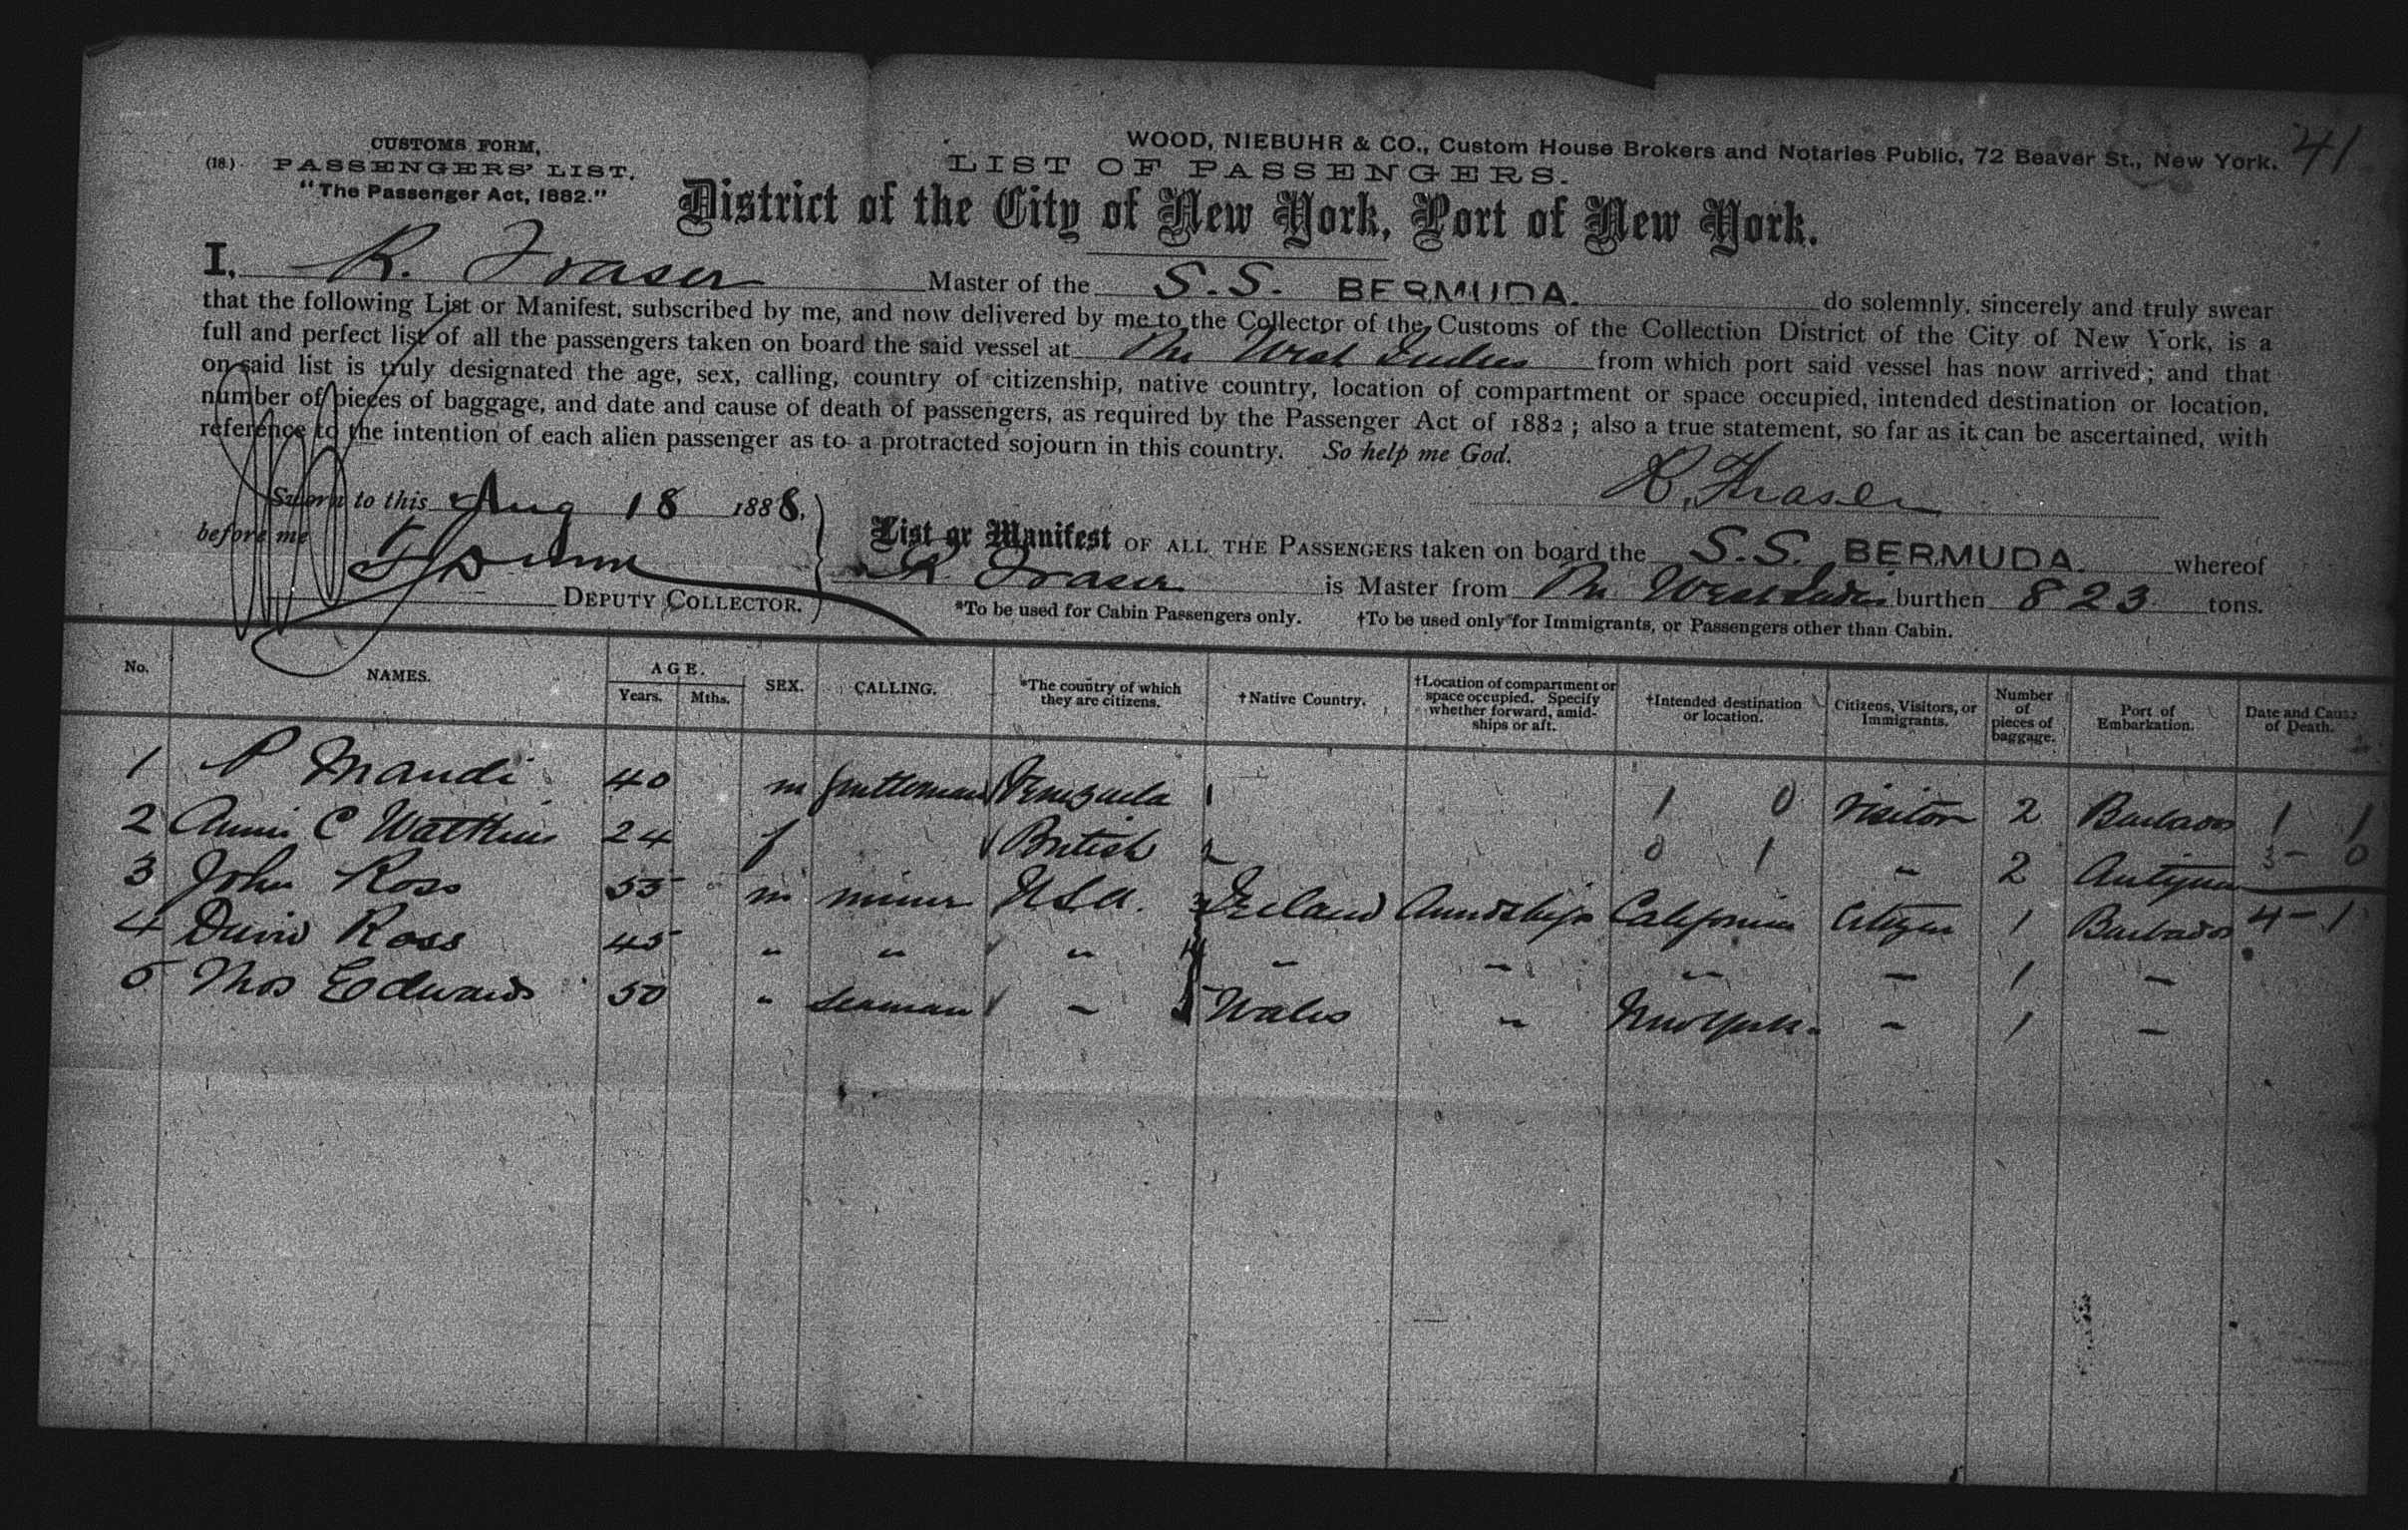 41
CUSTOMS FORM,
(18.) PASSENGERS' LIST.
"The Passenger Act, 1882."
WOOD, NIEBUHR & CO., Custom House Brokers and Notaries Public, 72 Beaver St., New York.
LIST OF PASSENGERS.
District of the City of New York, Port of New York.
I, R. Fraser Master of the S.S. BERMUDA. do solemnly, sincerely and truly swear
that the following List or Manifest, subscribed by me, and now delivered by me to the Collector of the Customs of the Collection District of the City of New York, is a
full and perfect list of all the passengers taken on board the said vessel at The West Indies from which port said vessel has now arrived; and that
on said list is truly designated the age, sex, calling, country of citizenship, native country, location of compartment or space occupied, intended destination or location,
number of pieces of baggage, and date and cause of death of passengers, as required by the Passenger Act of 1882; also a true statement, so far as it can be ascertained, with
reference to the intention of each alien passenger as to a protracted sojourn in this country. So help me God.
R. Fraser
Sworn to this Aug 18 1888,
before me
DEPUTY COLLECTOR.
List or Manifest OF ALL THE PASSENGERS taken on board the S.S. BERMUDA. whereof
R. Fraser is Master from The West Indies burthen 823 tons.
*To be used for Cabin Passengers only. †To be used only for Immigrants, or Passengers other than Cabin.
No. NAMES. AGE. Years. Mths. SEX. CALLING. *The country of which they are citizens. †Native Country. †Location of compartment or space occupied. Specify whether forward, amidships or aft. †Intended destination or location. Citizens, Visitors, or Immigrants. Number of pieces of baggage. Port of Embarkation. Date and Cause of Death.
1 P Mandi 40 m Gentleman Venezuela 1 1 0 Visitor 2 Barbados 1 1
2 Annie C Watkins 24 f British 2 0 1 " 2 Antigua 3 - 0
3 John Ross 55 m miner U.S.A. 3 Ireland Amidships California Citizen 1 Barbados 4 - 1
4 David Ross 45 " " " 4 " " " " 1 "
5 Thos Edwards 50 " Seaman " 5 Wales " New York. " 1 "